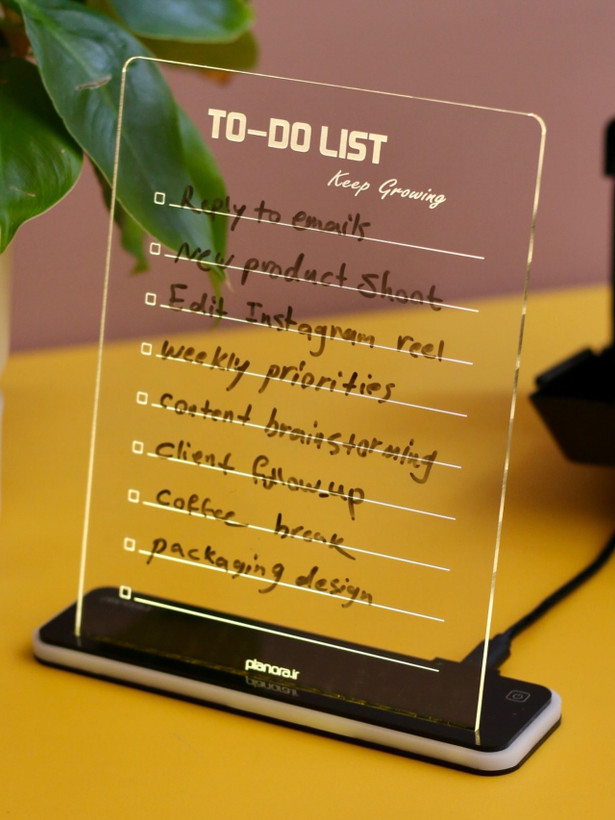 TO-DO LIST
Keep Growing
Reply to emails
New product Shoot
Edit Instagram reel
weekly priorities
content brainstorming
client follow-up
coffee break
packaging design
planora.ir